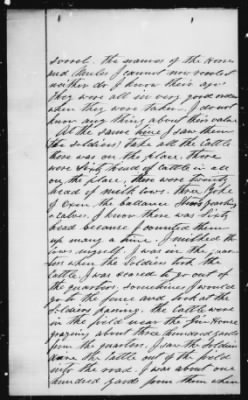 sorrel. the names of the Horses
and Mules I cannot now recollect
neither do I know their age
they were all in very good order
when they were taken. I do not
know any thing about their value
At the same time I saw them
(the soldiers) take all the cattle
there was on the place. there
were sixty head of cattle in all
on the place, there were twenty
head of milk cows. three yoke
of Oxen. the ballance Steers yearlings
& calves. I know there was sixty
head because I counted them
up many a time. I milked the
cows myself. I was in the quar-
ters when the soldiers took the
cattle. I was scared to go out of
the quarters. sometimes I would
go to the fence and look at the
soldiers passing. the cattle were
in the field near the Gin House
grazing about three hundred yards
from the quarters. I saw the Soldiers
drive the cattle out of the field
into the road. I was about one
hundred yards from them when